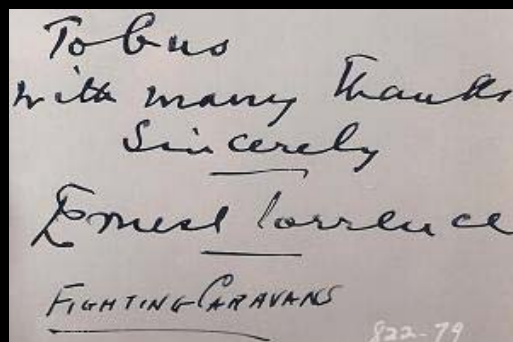 To Gus
with many Thanks
Sincerely
Ernest Torrence
FIGHTING CARAVANS
822-79